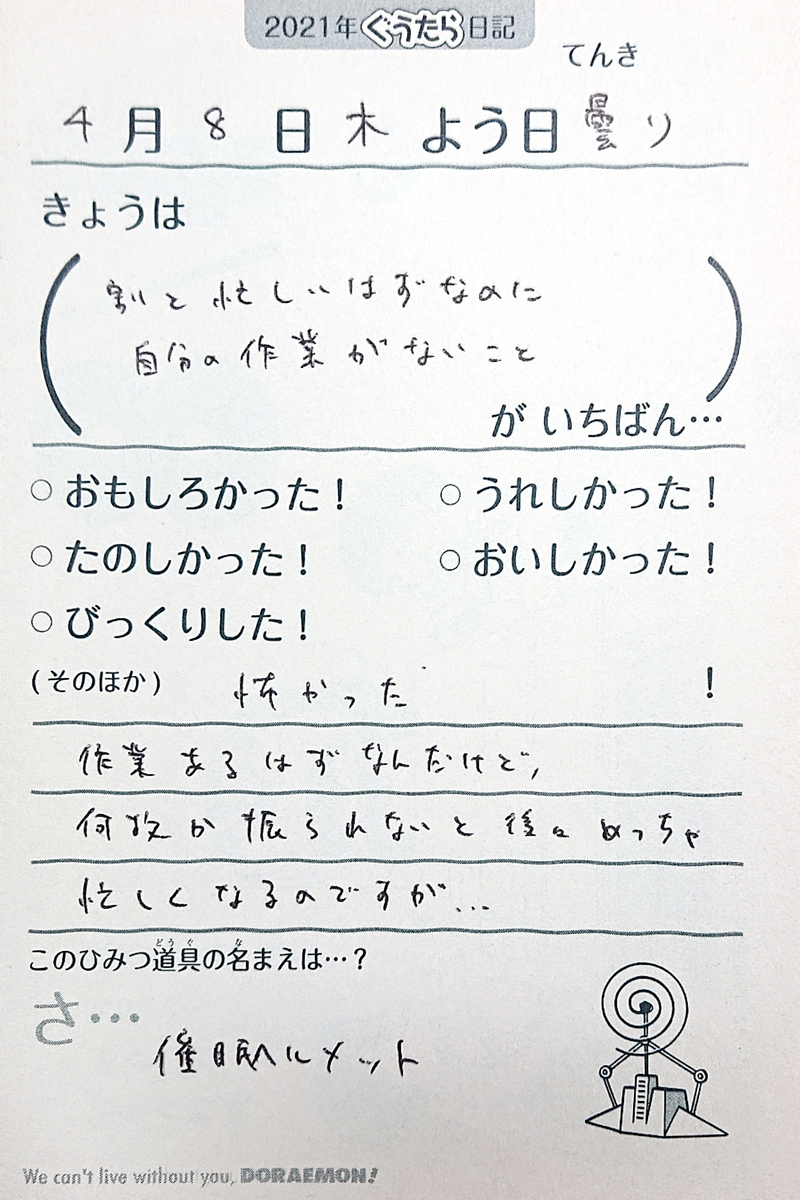 2021年ぐうたら日記
てんき
4月8日木よう日曇り
きょうは
割と忙しいはずなのに
自分の作業がないこと
がいちばん…
○おもしろかった！ ○うれしかった！
○たのしかった！ ○おいしかった！
○びっくりした！
(そのほか) 怖かった！
作業あるはずなんだけど,
何故か振られないと後々めっちゃ
忙しくなるのですが...
このひみつ道具の名まえは…？
さ…
催眠ヘルメット
We can't live without you, DORAEMON!